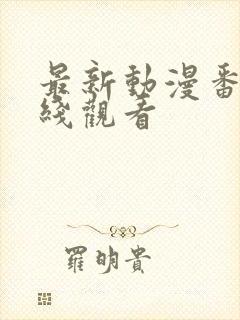 最新動漫番
綫觀看
羅明貴